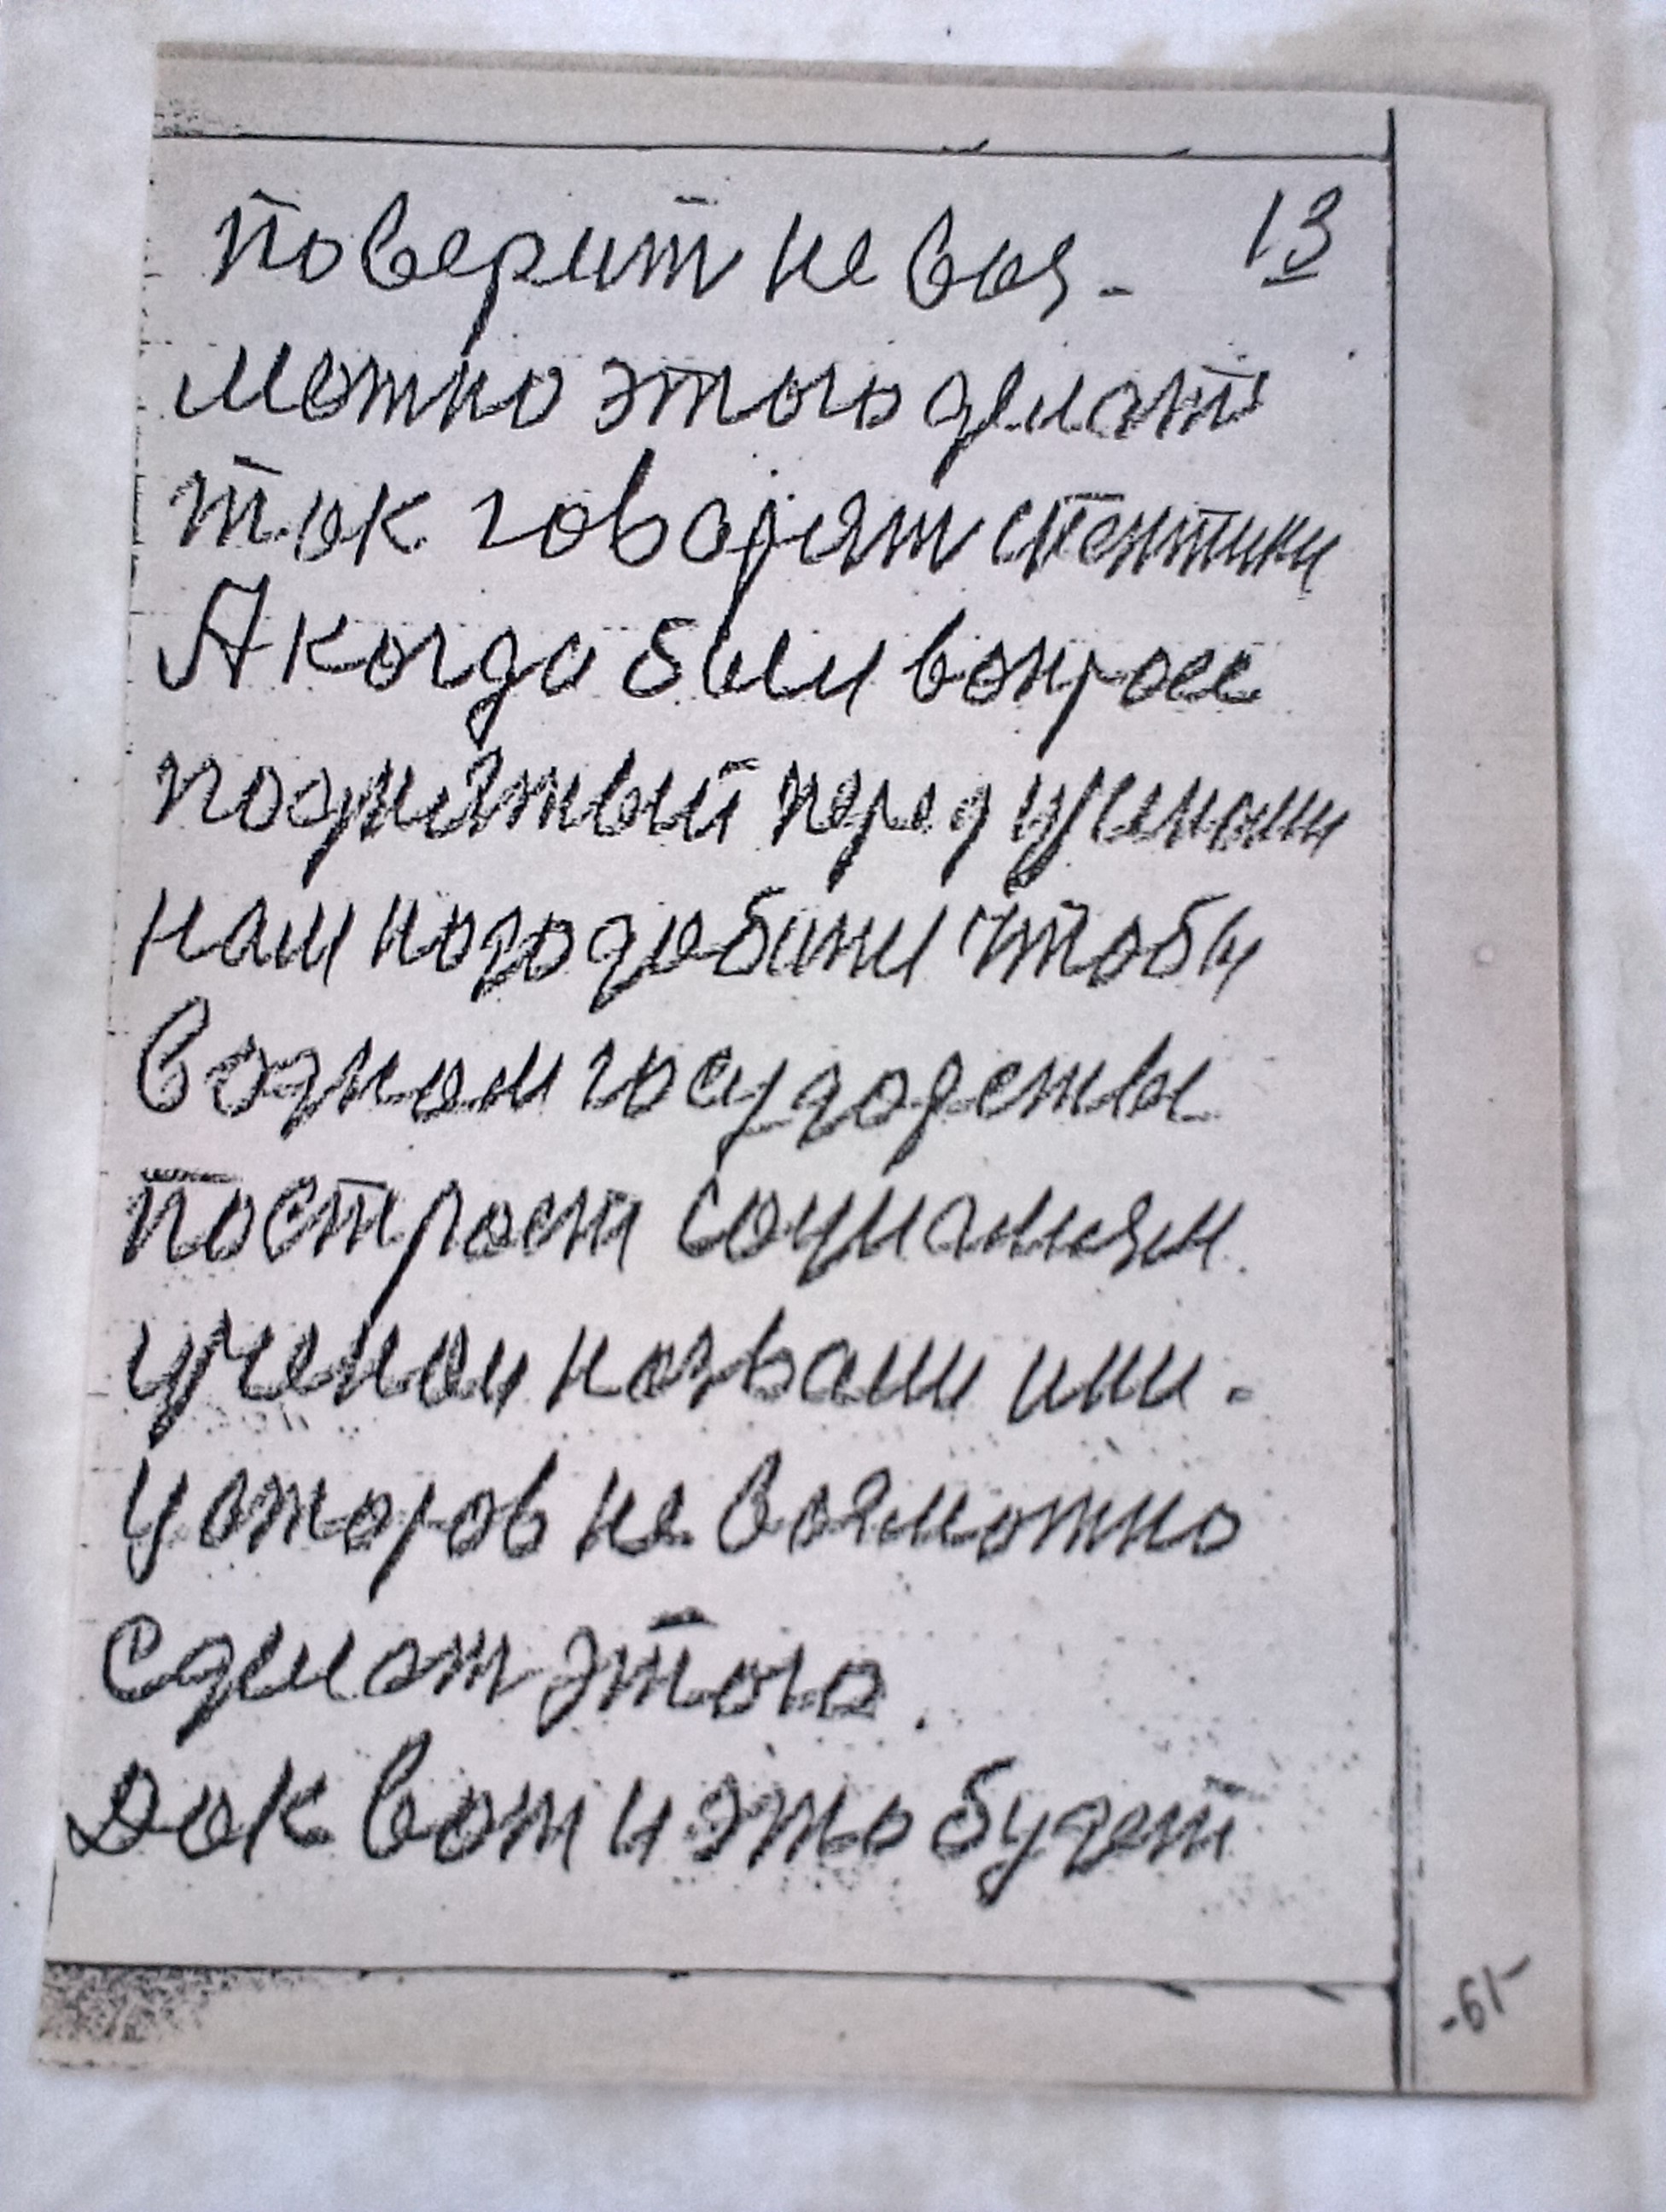 поверит не воз- 13
можно этого делать
так говорят скептики
А когда был вопрос
поднятый перед учеными
нам надо добити чтобы
в одном государстве
построет социализм.
ученаи назвали ини-
циаторов не возможно
сделат этого.
Дак вот и это будет
-61-